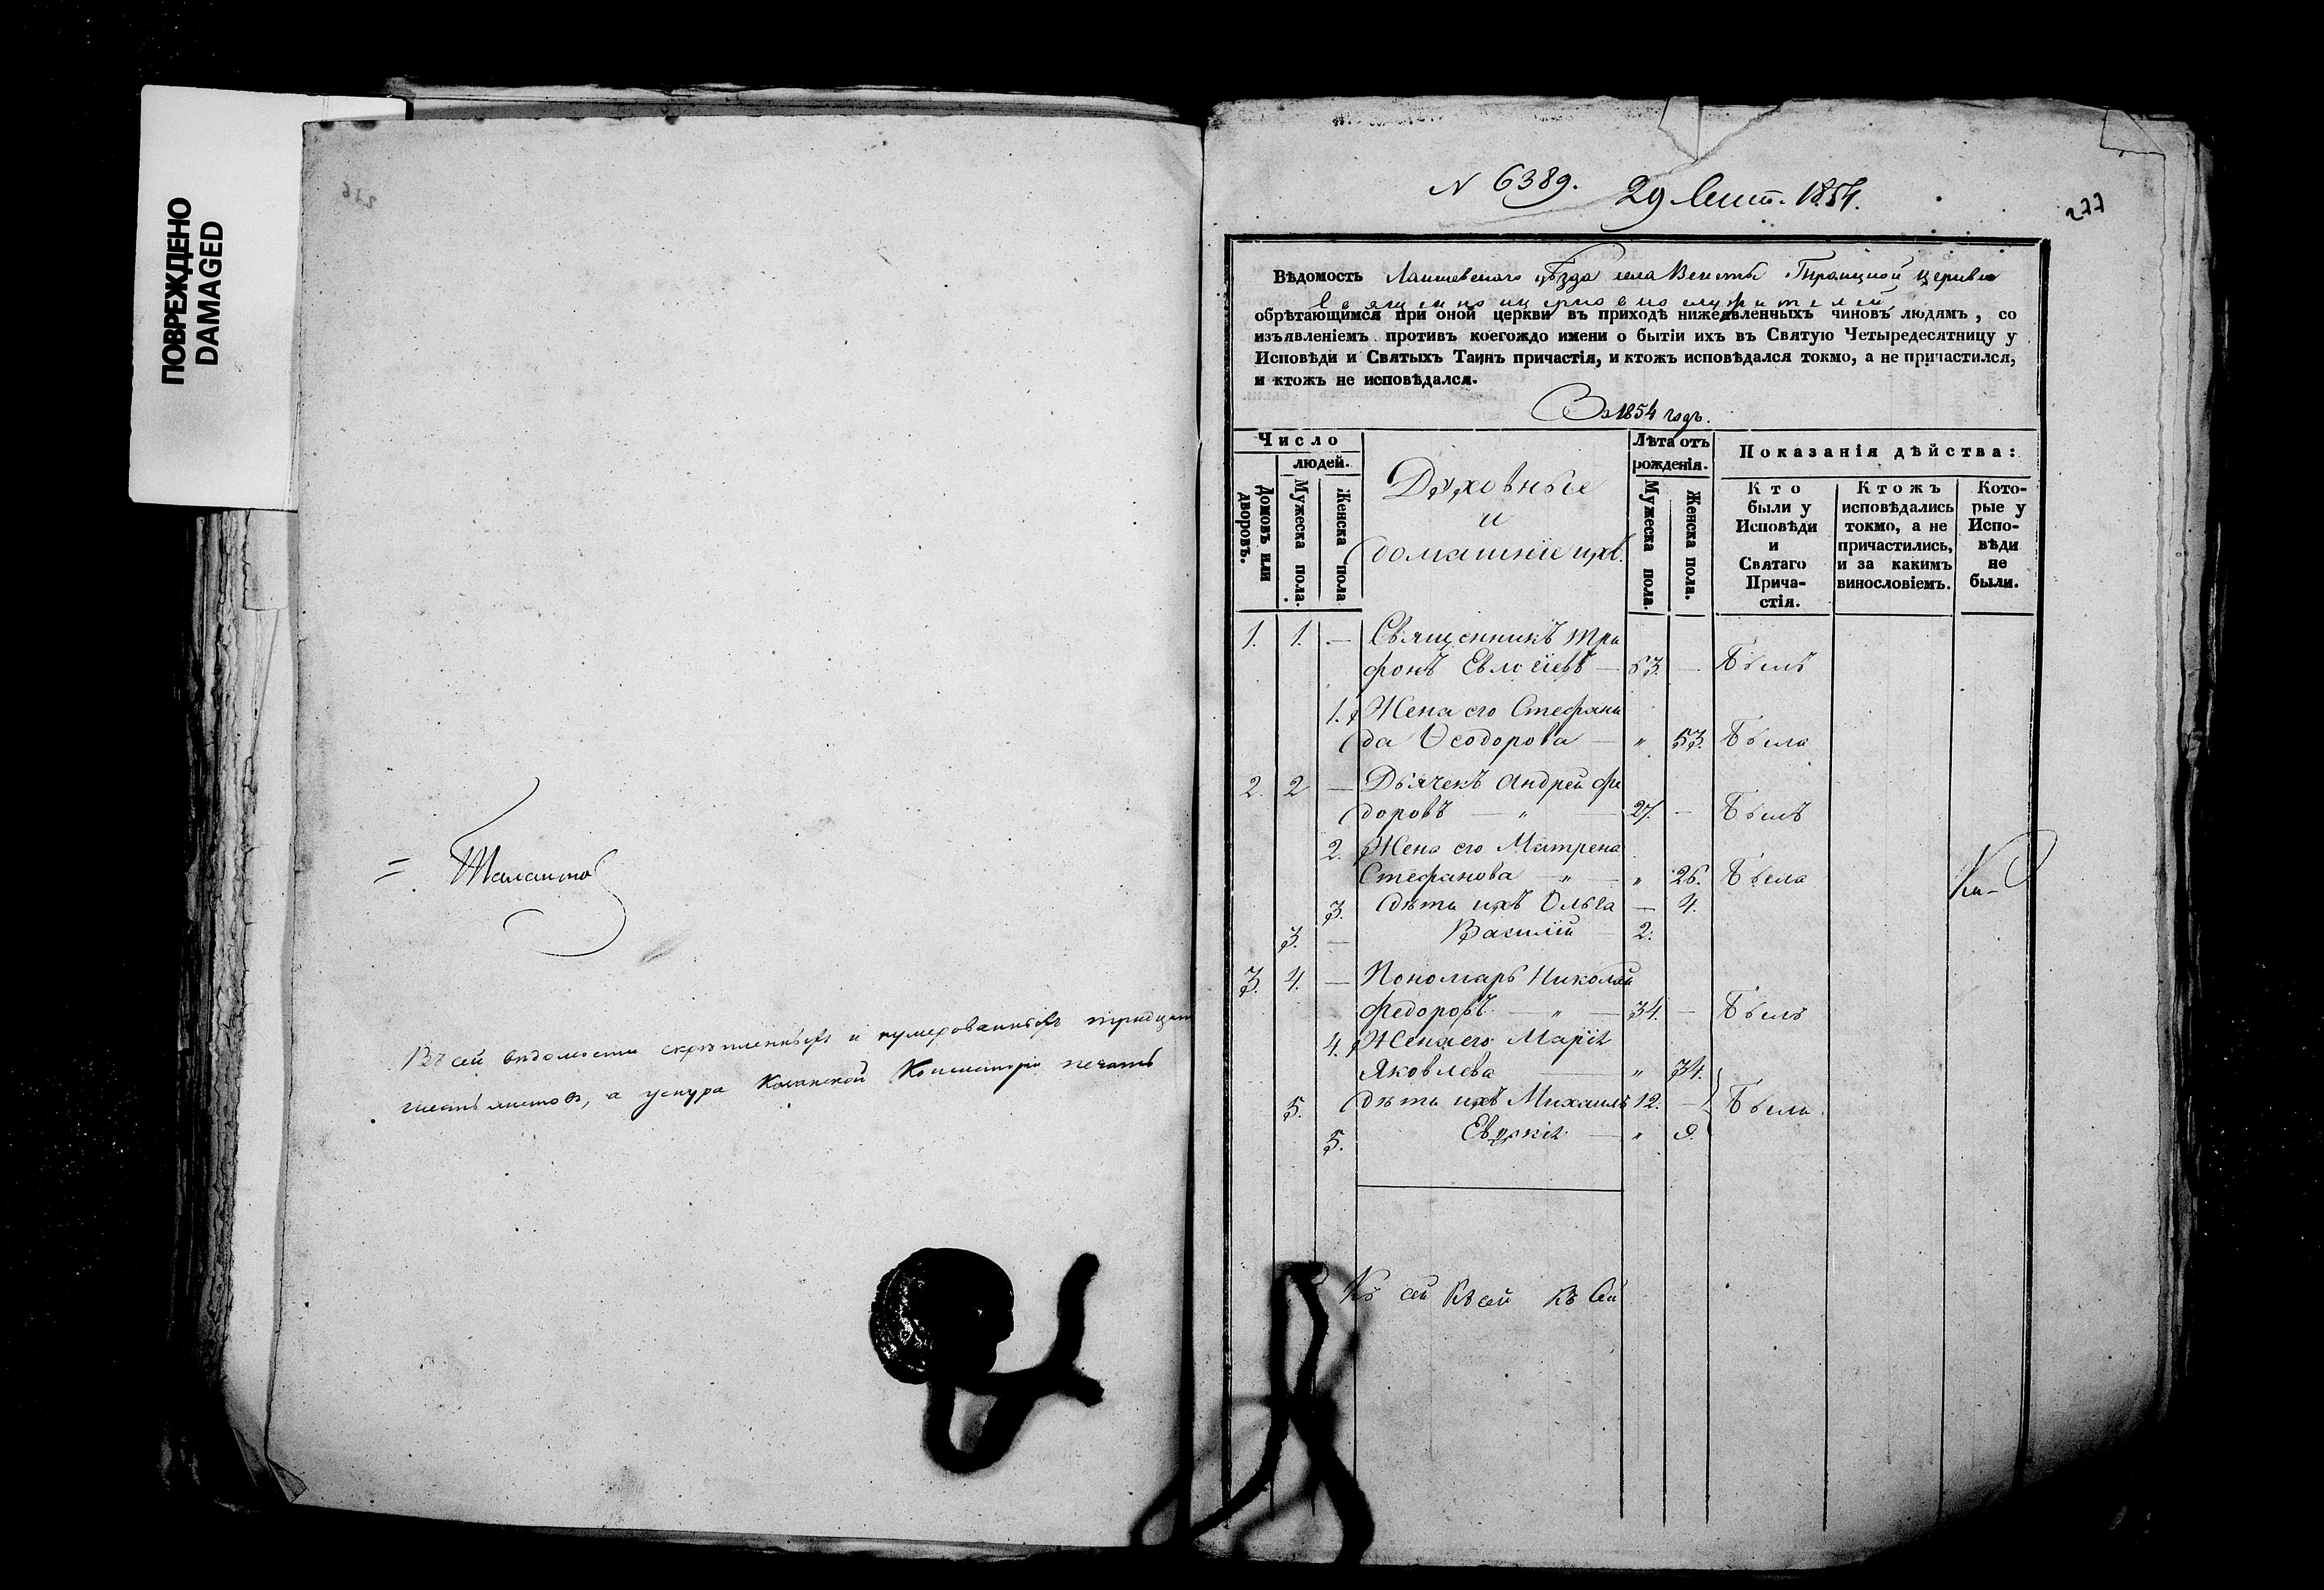 ПОВРЕЖДЕНО
DAMAGED
276
Талантов
Въ сей ведомости скрѣпленныхъ и нумерованныхъ тридцать
шесть листов, а у снура Казанской Консисторіи печать
N 6389. 29 Сент. 1854.
277
Вѣдомость Лаишевскаго уѣзда села Венеты Троицкой церкви
Священно церковно служителей,
обрѣтающимся при оной церкви въ приходѣ нижеявленныхъ чиновъ людямъ, со
изъявленіемъ противъ коегождо имени о бытіи ихъ въ Святую Четыредесятницу у
Исповѣди и Святыхъ Таинъ причастія, и ктожъ исповѣдался токмо, а не причастился,
и ктожъ не исповѣдался.
За 1854 годъ.
Число
людей.
Домовъ или дворовъ.
Мужеска пола.
Женска пола
Духовные
и
домашніе ихъ.
Лѣта отъ
рожденія.
Мужеска пола.
Женска пола.
Показанія дѣйства:
Кто
были у
Исповѣди
и
Святаго
Прича-
стія.
Ктожъ
исповѣдались
токмо, а не
причастились,
и за какимъ
винословіемъ.
Кото-
рые у
Испо-
вѣди
не
были.
1. 1. — Священникъ Три
фонъ Евлогіевъ — 53. — Былъ
1. Жена его Стефани
да Ѳеодорова — " 53. Была
2. 2 — Дьячекъ Андрей Фе
доровъ — " — 27. — Былъ
2. Жена его Матрена
Стефанова — " — " 26. Была
3. дѣти ихъ Ольга — 4.
3. — Василій — 2.
3. 4. — Пономарь Николай
Федоровъ — " — 34. — Былъ
4. Жена его Марія
Яковлева — " 34.
5. дѣти ихъ Михаилъ 12. — Была
5. Евдокія — " 9.
Къ сей Къ сей Къ Сей